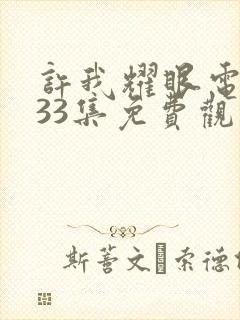 許我耀眼電
33集免費觀
斯蒈文�索德